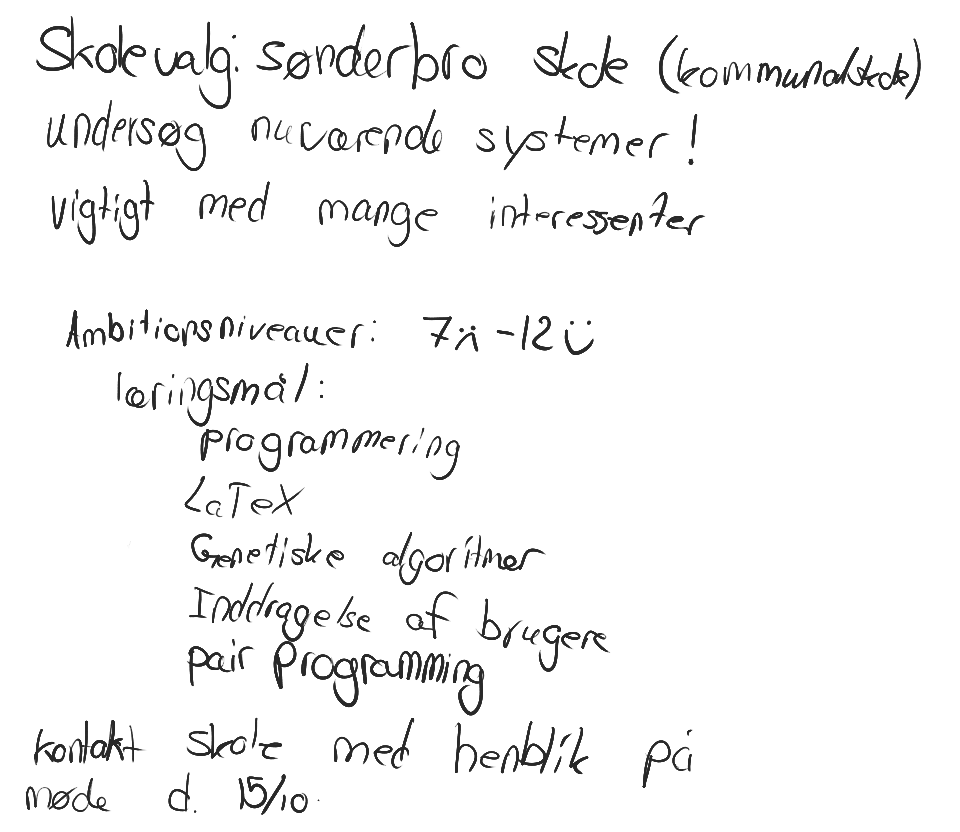 Skolevalg: sønderbro skole (kommunalskole)
undersøg nuværende systemer!
vigtigt med mange interessenter
Ambitionsniveauer: 7 ☹ - 12 ☺
læringsmål:
programmering
LaTeX
Genetiske algoritmer
Inddragelse af brugere
pair Programming
kontakt skole med henblik på
møde d. 15/10.